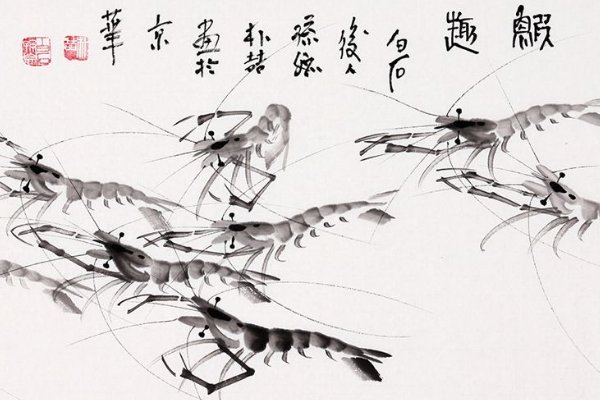 鰕
趣
白石
後人
朴喆
畫於
京
華